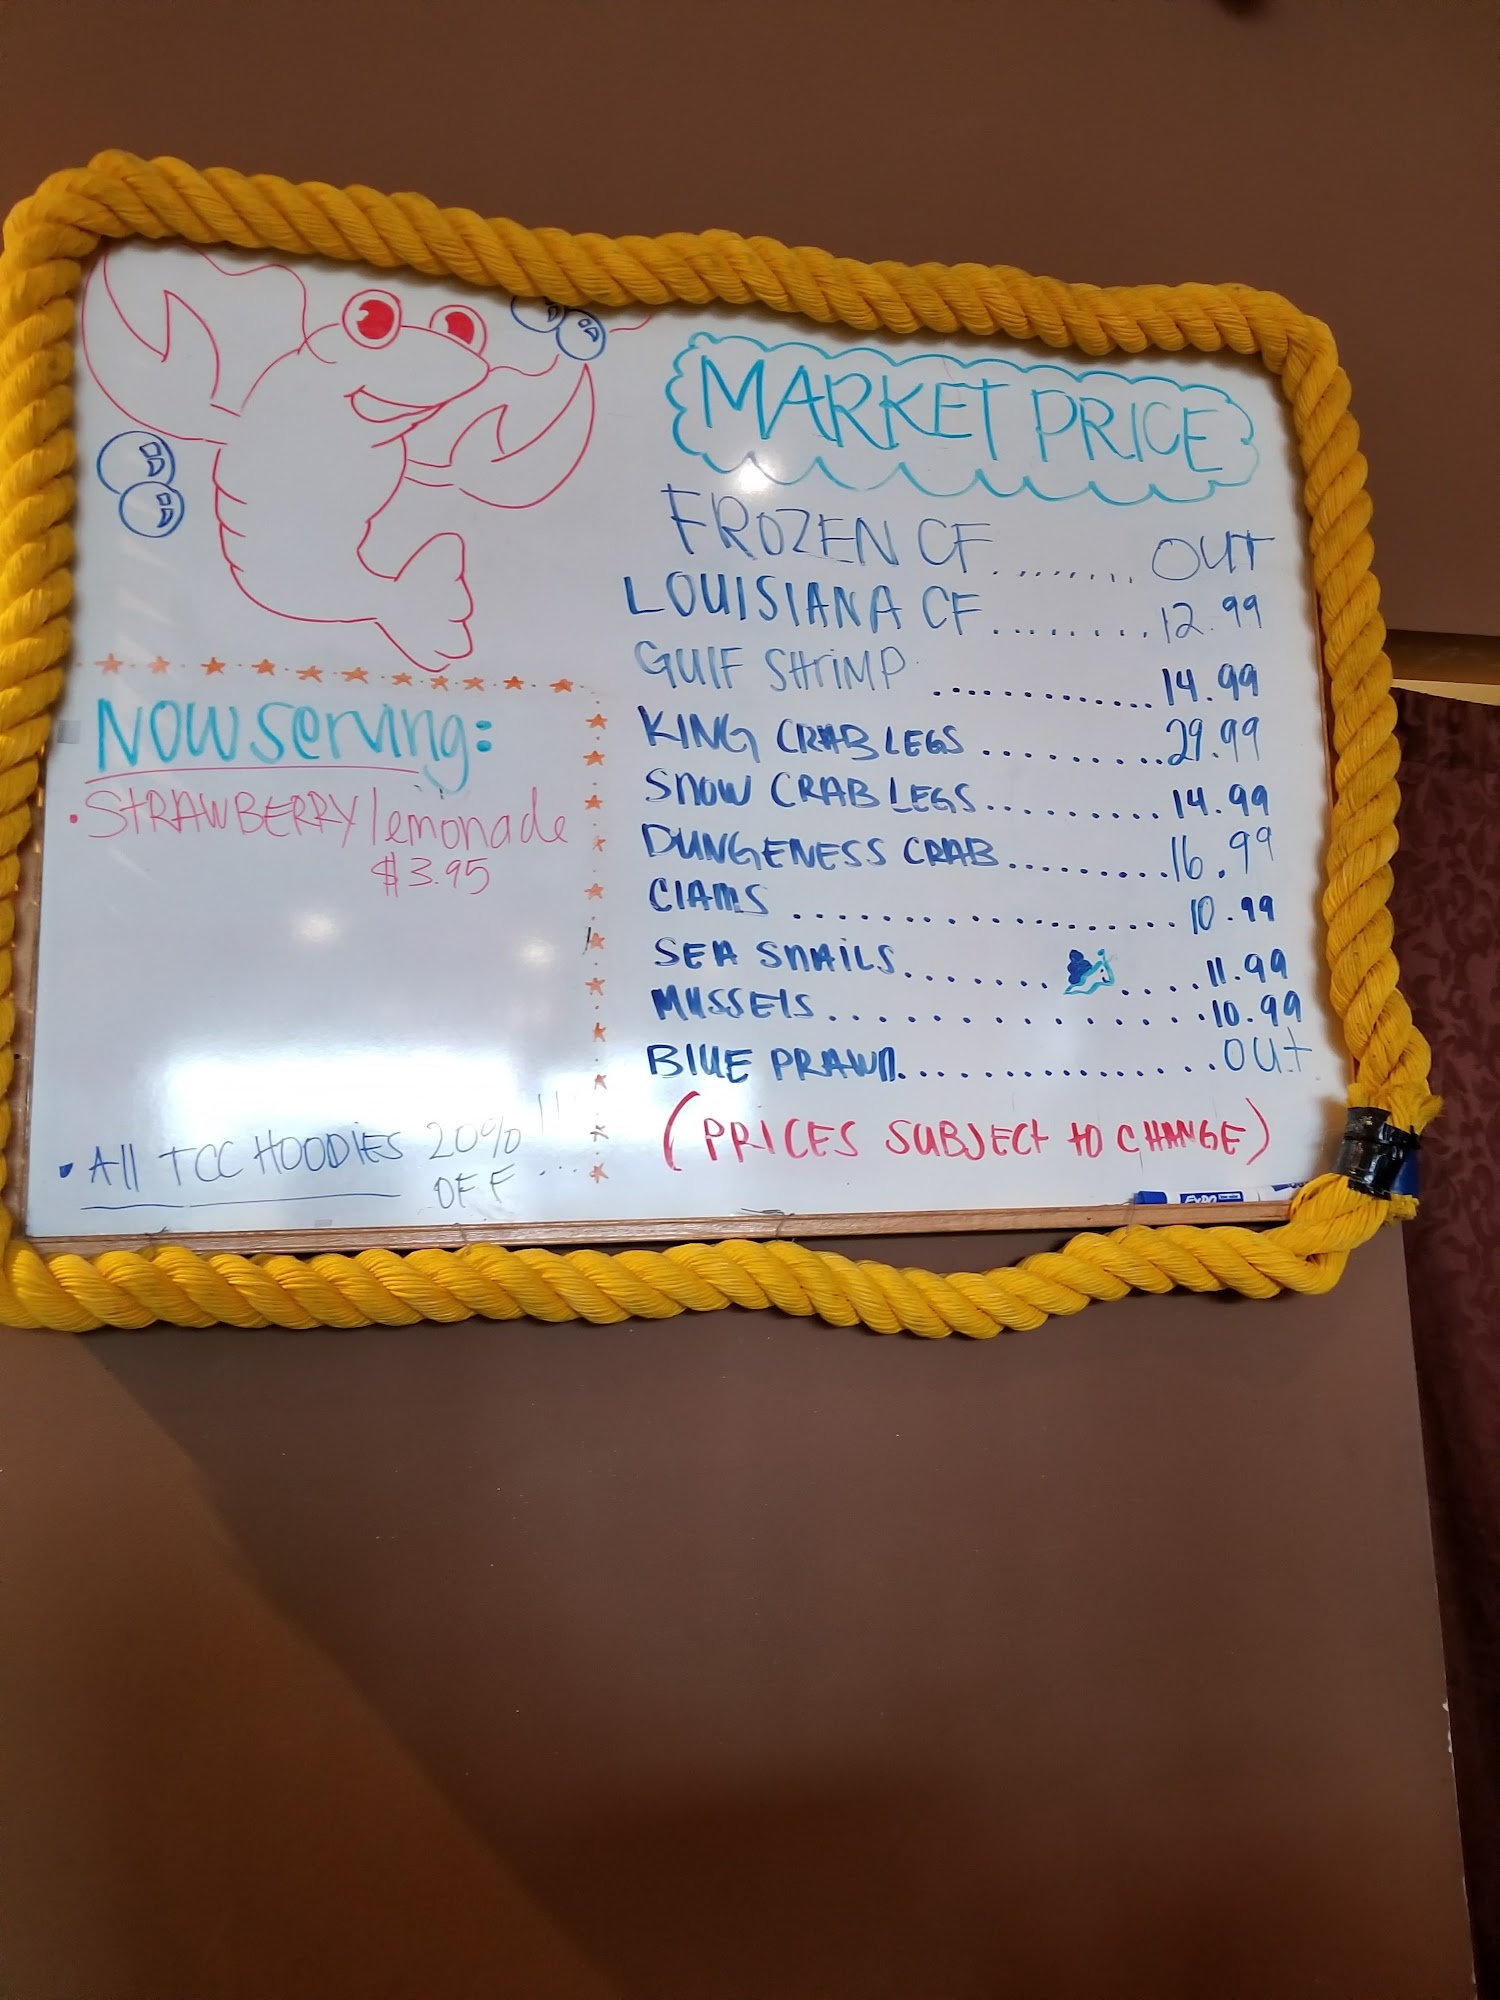 MARKET PRICE
FROZEN CF ........ OUT
LOUISIANA CF ........ 12.99
GUlF SHRiMP ............ 14.99
KING CRAB LEGS .......... 29.99
SNOW CRAB LEGS ......... 14.99
DUNGENESS CRAB .......... 16.99
ClAMS .................. 10.99
SEA SNAiLS ............ 11.99
MUSSElS ................ 10.99
BlUE PRAWN ................ OUt
(PRICES SUBJECt tO CHANGE)
NOW Serving:
• STRAWBERRY lemonade
$3.95
• All TCC HOODiES 20%
OFF ...
EXPO